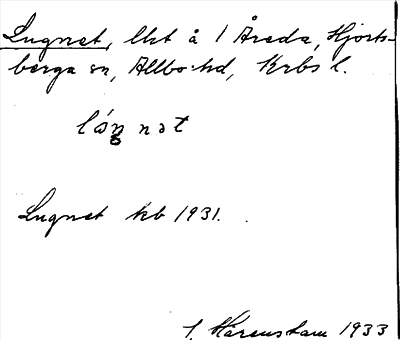 Lugnet, lht å 1 Åreda, Hjorts-
berga sn, Allbo hd, Krbs l.
lóŋnət
Lugnet kb 1931.
1. Harenstam 1933